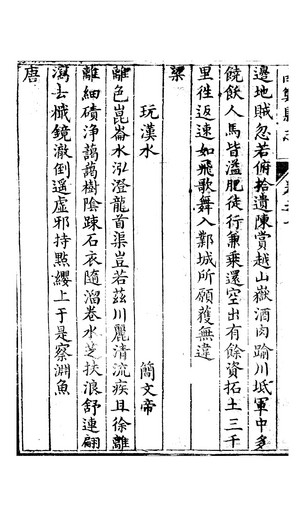 邊地賊忽若俯拾遺陳賞越山嶽酒肉踰川坻軍中多
饒飲人馬皆溢肥徒行兼乘還空出有餘資拓土三千
里徃返速如飛歌舞入鄴城所願獲無違
梁
玩漢水 簡文帝
離色崑崙水泓澄龍首渠豈若茲川麗清流疾且徐離
離細磧淨藹藹樹陰疎石衣隨溜卷水芝扶浪舒連翩
瀉去檝鏡澈倒遥虛邪持點纓上于是察淵魚
唐